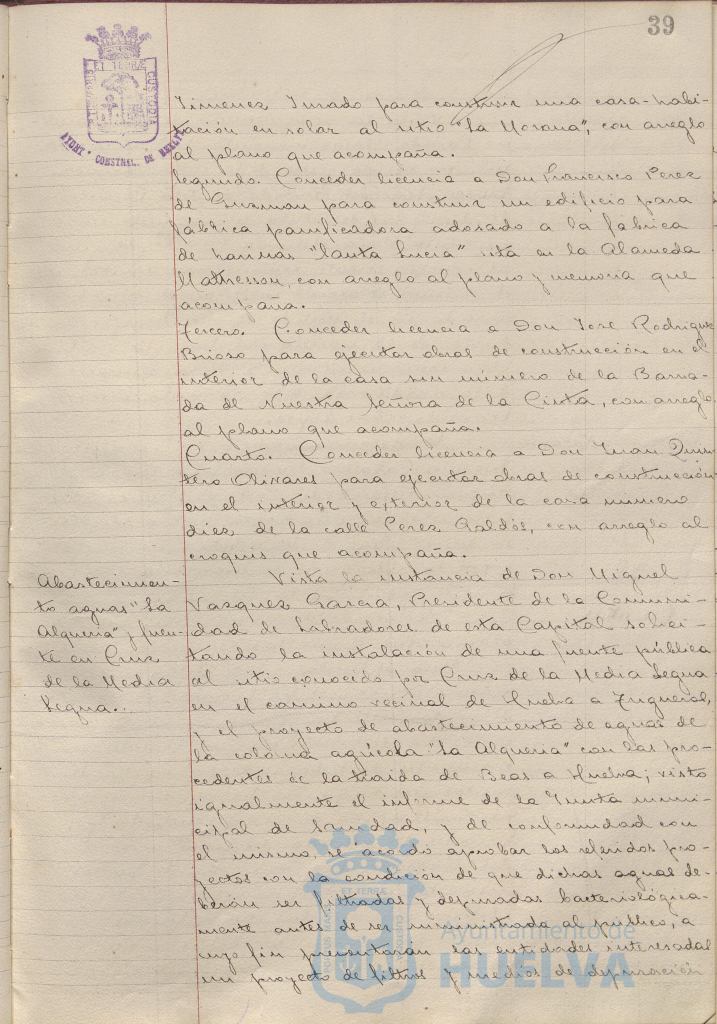 39
PORTUS MARIS ET TERRÆ CUSTODIA
AYUNT. CONSTNEL. DE HUELVA
Jimenez Jurado para construir una casa-habi-
tación en solar al sitio "La Morana", con arreglo
al plano que acompaña.
Segundo. Conceder licencia a Don Francisco Perez
de Guzman para construir un edificio para
fábrica panificadora adosado a la fabrica
de harinas "Santa Lucia" sita en la Alameda
Mathesson, con arreglo al plano y memoria que
acompaña.
Tercero. Conceder licencia a Don José Rodriguez
Brioso para ejecutar obras de construcción en el
interior de la casa sin número de la Barria-
da de Nuestra Señora de la Cinta, con arreglo
al plano que acompaña.
Cuarto. Conceder licencia a Don Juan Quin-
tero Olivares para ejecutar obras de construcción
en el interior y exterior de la casa numero
diez de la calle Perez Galdós, con arreglo al
croquis que acompaña.
Abastecimien-
to aguas "La
Alqueria" y fuen-
te en Cruz
de la Media
Legua.
Vista la instancia de Don Miguel
Vazquez Garcia, Presidente de la Comuni-
dad de Labradores de esta Capital solici-
tando la instalación de una fuente pública
al sitio conocido por Cruz de la Media Legua
en el camino vecinal de Huelva a Trigueros,
y el proyecto de abastecimiento de aguas de
la colonia agrícola "La Alqueria" con las pro-
cedentes de la traida de Beas a Huelva; visto
igualmente el informe de la Junta muni-
cipal de Sanidad, y de conformidad con
el mismo, se acordo aprobar los referidos pro-
yectos con la condición de que dichas aguas de-
berán ser filtradas y depuradas bacteriológica-
mente antes de ser suministrada al público, a
cuyo fin presentarán las entidades interesadas
un proyecto de filtros y medios de depuración
Ayuntamiento de
HUELVA